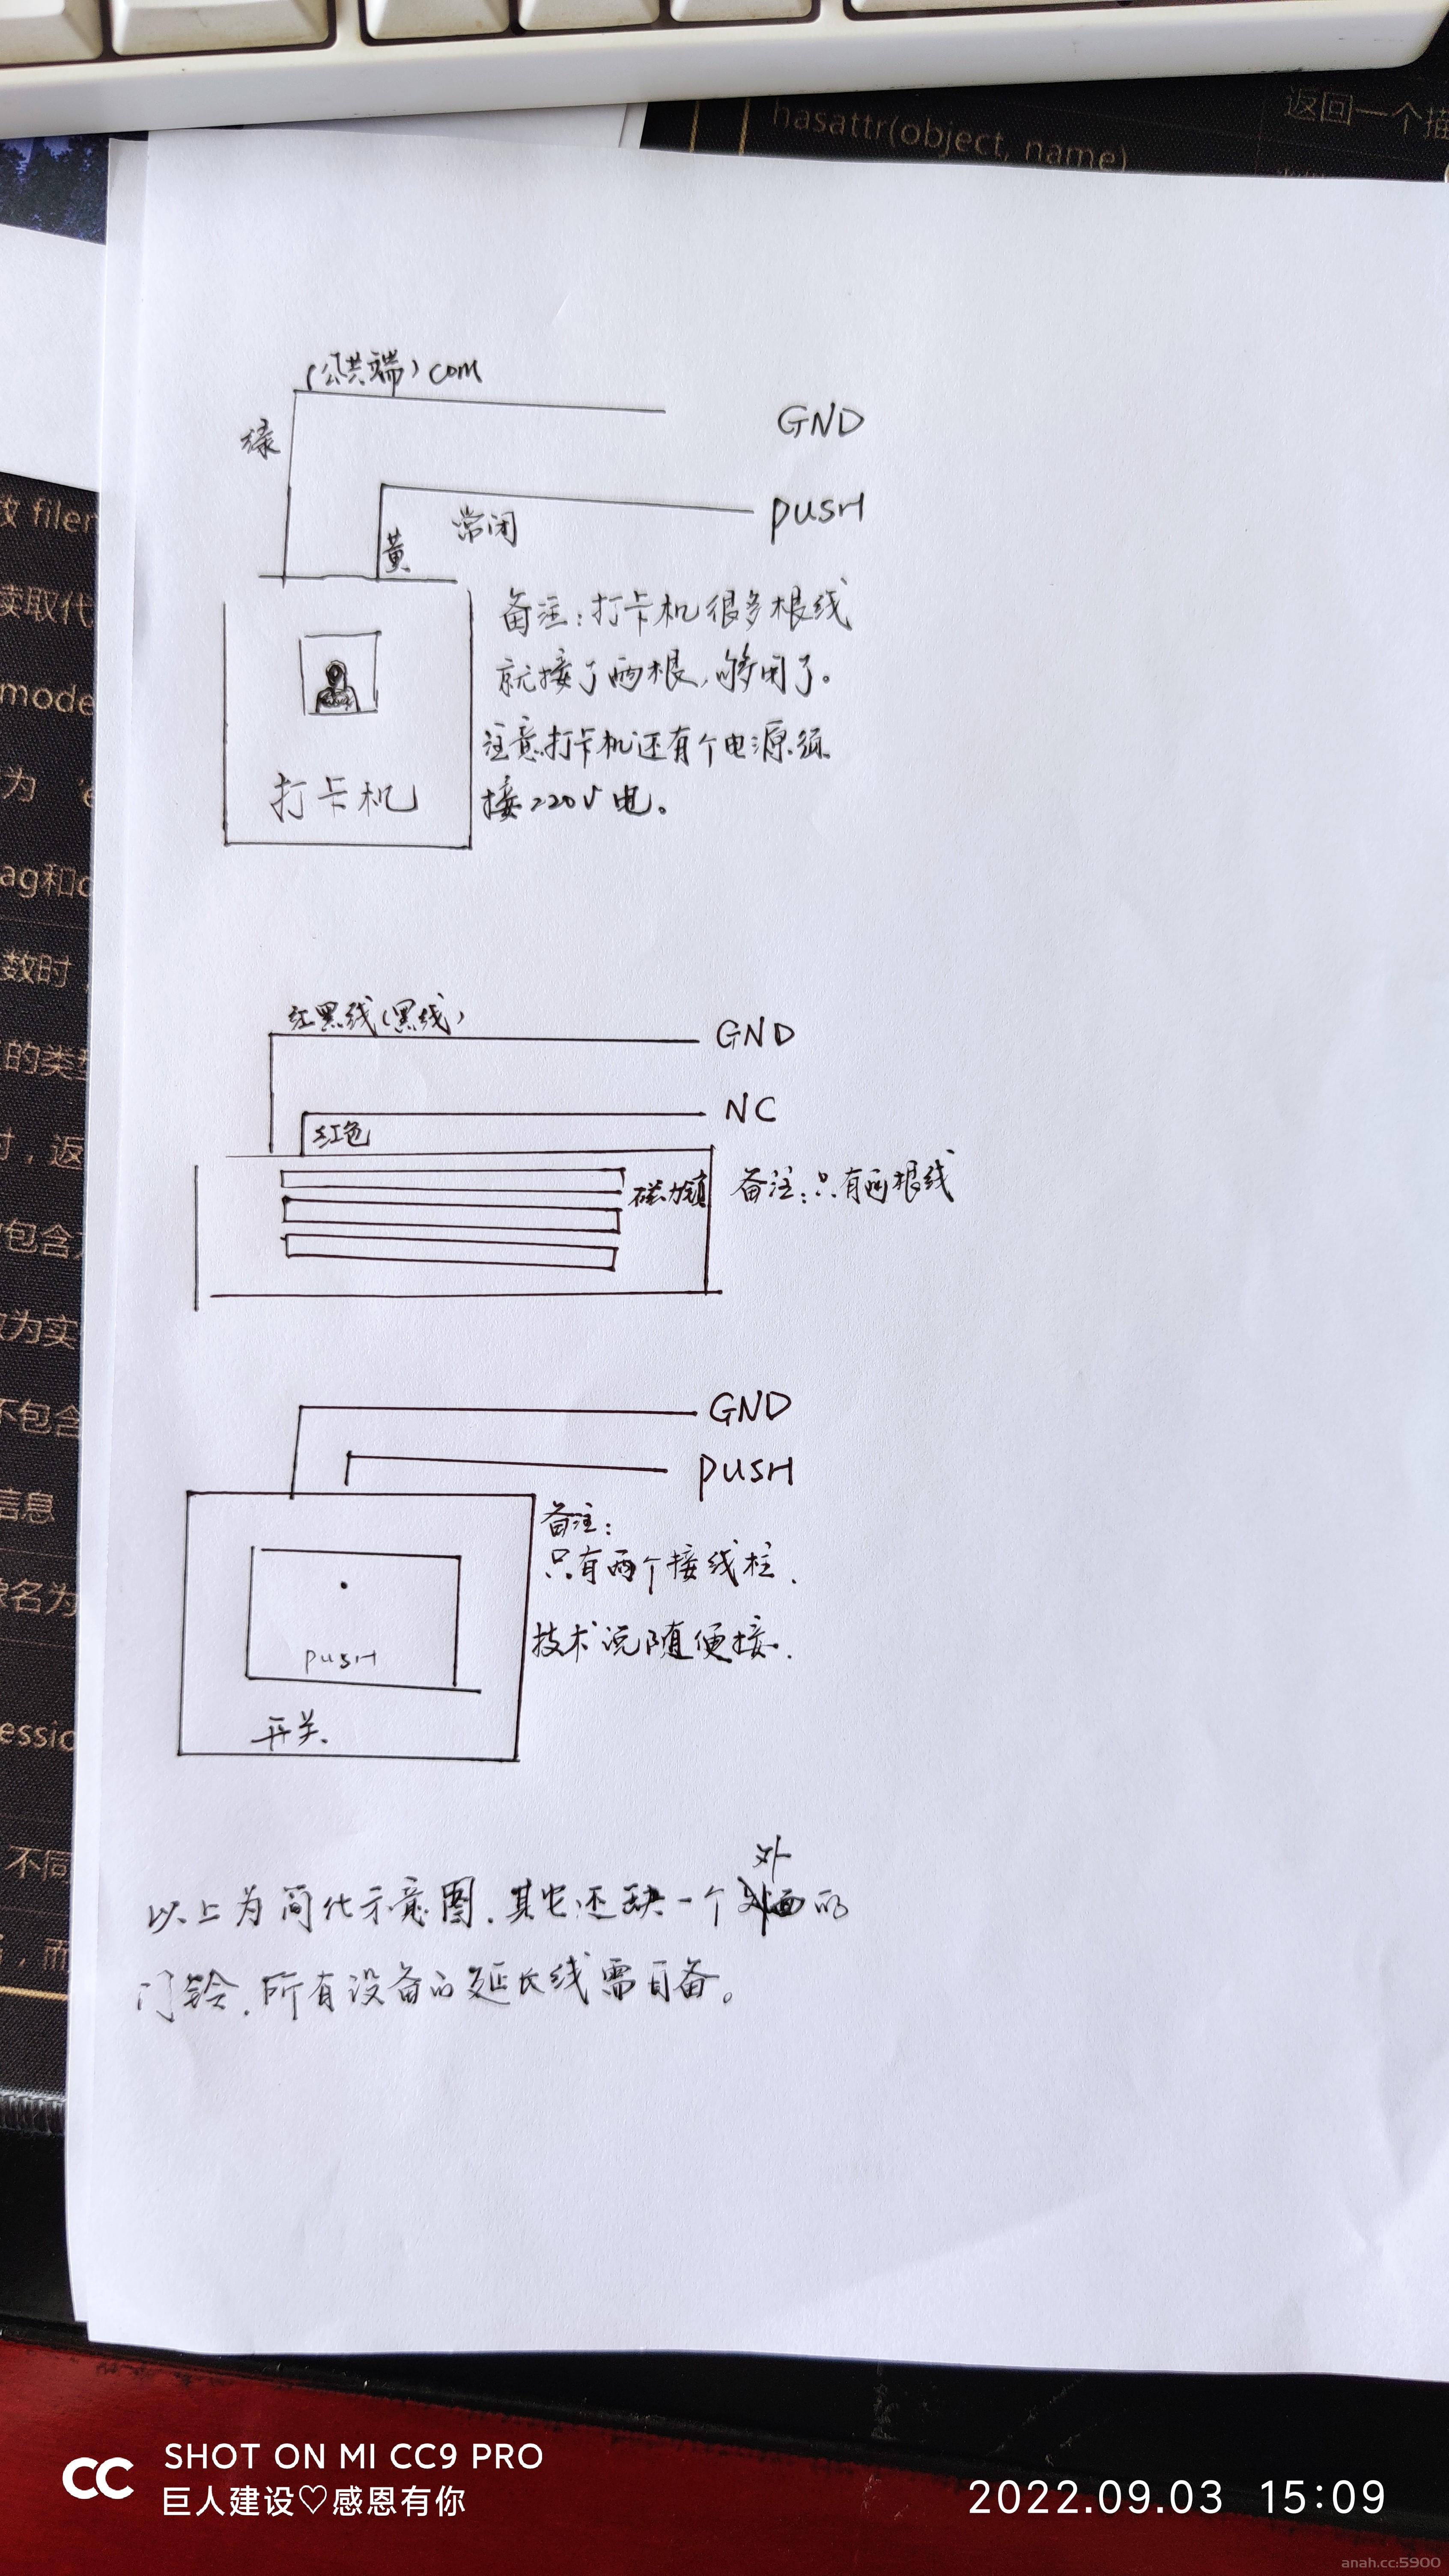 hasattr(object, name)
返回一个描
(公共端) com
绿
GND
黄
常闭
PUSH
备注:打卡机很多根线
就接了两根,够用了。
注意,打卡机还有个电源须
接220V电。
打卡机
红黑线(黑线)
GND
NC
红色
磁力锁
备注:只有两根线
GND
PUSH
备注:
只有两个接线柱.
技术说随便接.
PUSH
开关.
以上为简化示意图.其它还缺一个外面的
门铃.所有设备的延长线需自备。
读取代
mode
为 'e
数时,
的类
时,返
包含
为实
不包含
信息
名为
essio
不同
,而
CC
SHOT ON MI CC9 PRO
巨人建设♡感恩有你
2022.09.03 15:09
anah.cc:5900